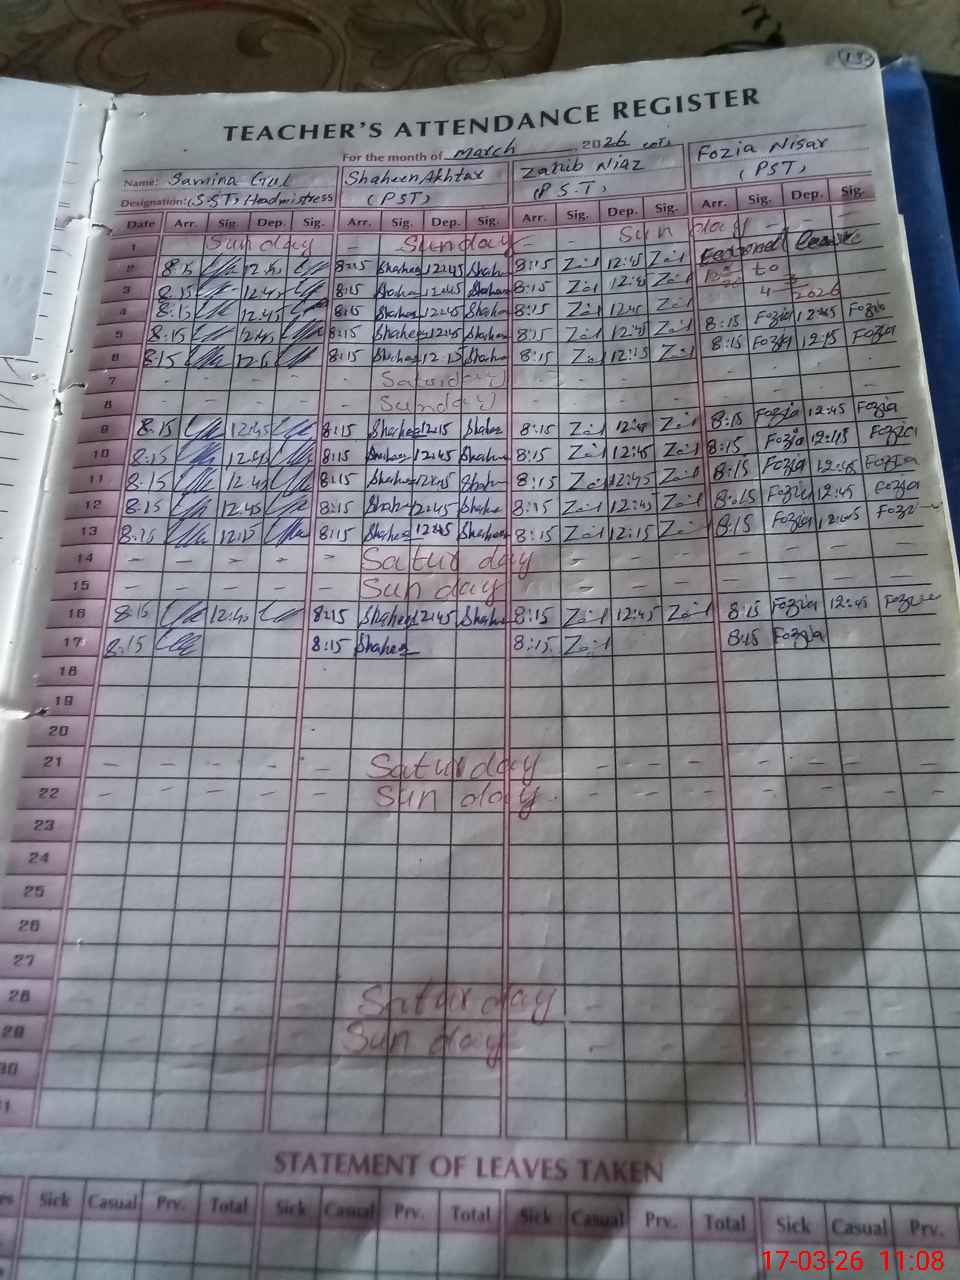 13
TEACHER'S ATTENDANCE REGISTER
For the month of March 2026
Name: Samina Gul Shaheen Akhtar Zahib Niaz Fozia Nisar
Designation: (SST) Headmistress (PST) (P.S.T) (PST)
Date Arr. Sig. Dep. Sig. Arr. Sig. Dep. Sig. Arr. Sig. Dep. Sig. Arr. Sig. Dep. Sig.
1 Sunday - Sunday - - Sun day - -
2 8:15 12:45 8:15 Shaheen 12:45 Shah 8:15 12:45 leave
3 8:15 12:45 8:15 Shaheen 12:45 Shaheen 8:15 12:45 to
4 8:15 12:45 8:15 Shaheen 12:45 Shaheen 8:15 12:45 2026
5 8:15 12:45 8:15 Shaheen 12:45 Shaheen 8:15 12:45 8:15 Fozia 12:45 Fozia
6 8:15 8:15 Shaheen 12:15 Shaheen 8:15 12:15 8:15 Fozia 12:15 Fozia
7 - - - - - Saturday - - - - - - - -
8 - - - - - Sunday - - - - - - - -
9 8:15 12:45 8:15 Shaheen 12:15 Shahee 8:15 12:45 8:15 Fozia 12:45 Fozia
10 8:15 12:45 8:15 Shaheen 12:45 Shaheen 8:15 12:45 8:15 Fozia 12:45 Fozia
11 8:15 12:45 8:15 Shaheen 12:45 Shah 8:15 12:45 8:15 Fozia 12:45 Fozia
12 8:15 12:45 8:15 Shah 12:45 Shahe 8:15 12:45 8:15 Fozia 12:45 Fozia
13 8:15 12:15 8:15 Shaheen 12:45 Shaheen 8:15 12:15 8:15 Fozia Fozi
14 - - - - - Satur day - - - - - - -
15 - - - - - Sun day - - - - - - -
16 8:15 12:45 8:15 Shaheen 12:45 Shah 8:15 12:45 8:15 Fozia 12:45 Fozia
17 8:15 8:15 Shaheen 8:15 8:15 Fozia
18
19
20
21 - - - - - Saturday - - - - - - -
22 - - - - - Sun day - - - - - - -
23
24
25
26
27
28 - - - - - Satur day - - - - - - -
29 - - - - - Sun day - - - - - -
30
31
STATEMENT OF LEAVES TAKEN
Sick Casual Prv. Total Sick Casual Prv. Total Sick Casual Prv. Total Sick Casual Prv.
17-03-26 11:08